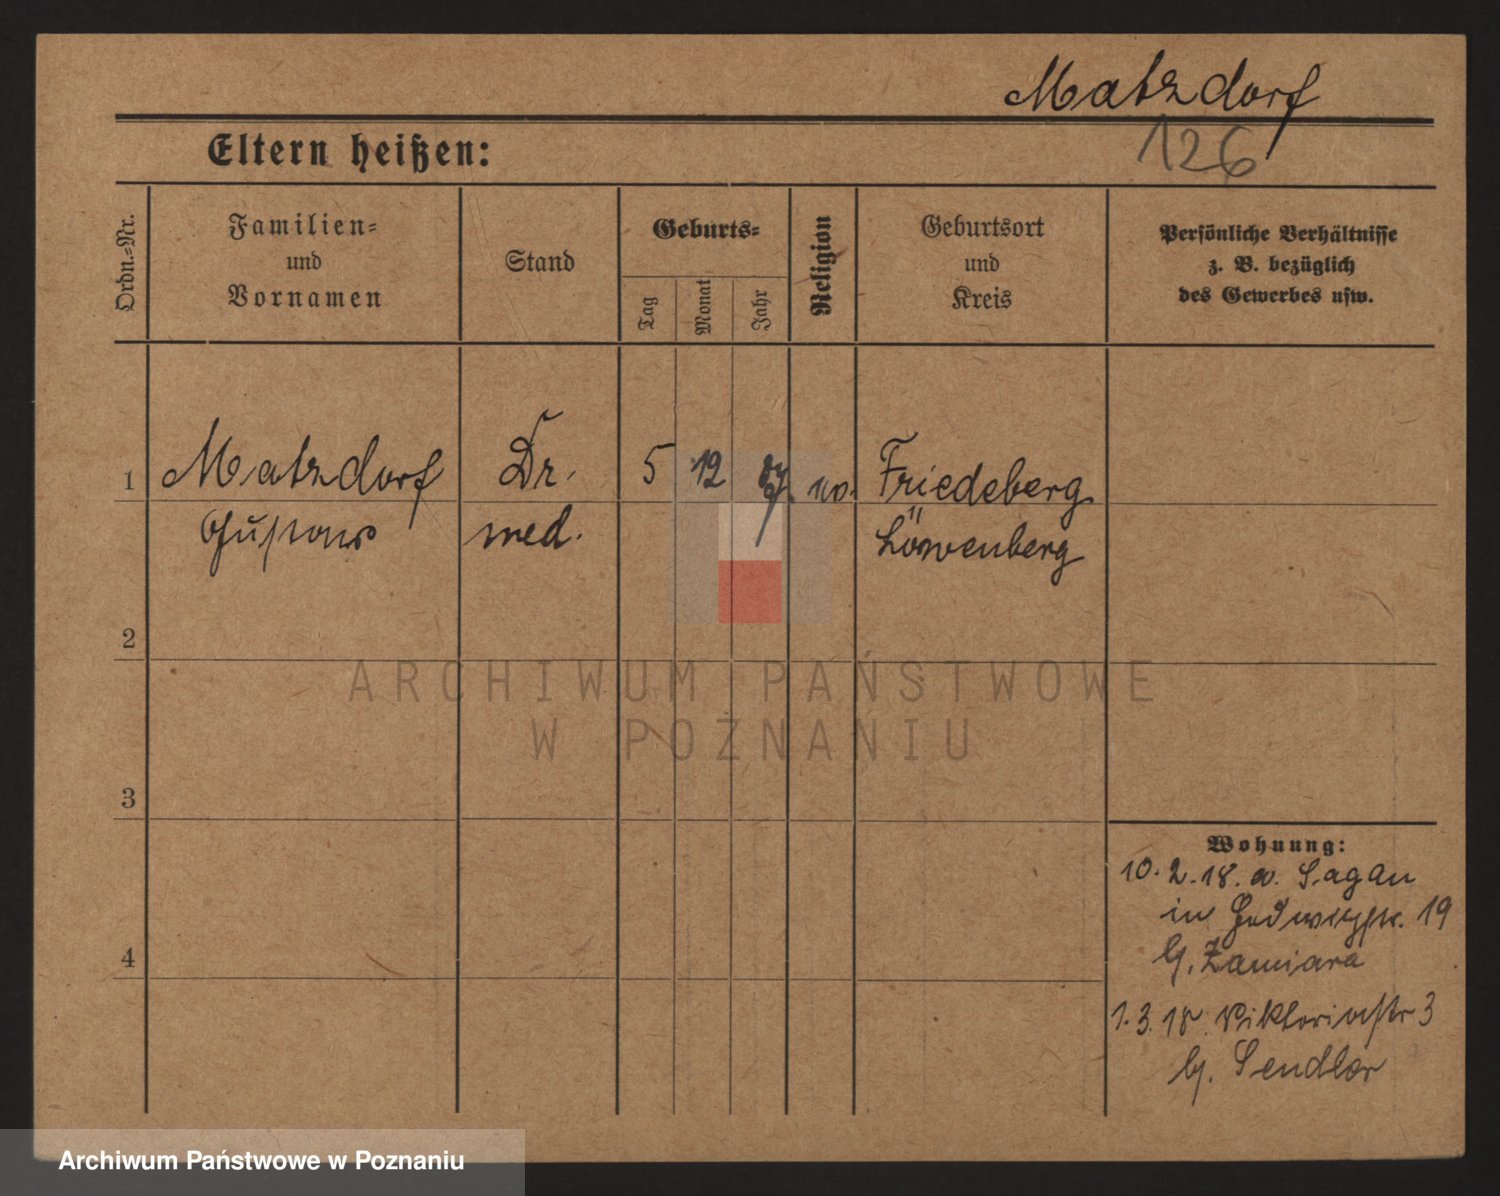 Matzdorf
126
Eltern heißen:
Ordn.=Nr.
Familien=
und
Vornamen
Stand
Geburts=
Tag
Monat
Jahr
Religion
Geburtsort
und
Kreis
Persönliche Verhältnisse
z. B. bezüglich
des Gewerbes usw.
1
Matzdorf
Gustav
Dr.
med.
5
12
87
Friedeberg
Löwenberg
2
ARCHIWUM PAŃSTWOWE
W POZNANIU
3
4
Wohnung:
10.2.18. v. Sagan
in Hedwigstr. 19
b. Zamiara
1.3.18. Viktoriastr 3
b. Sendler
Archiwum Państwowe w Poznaniu